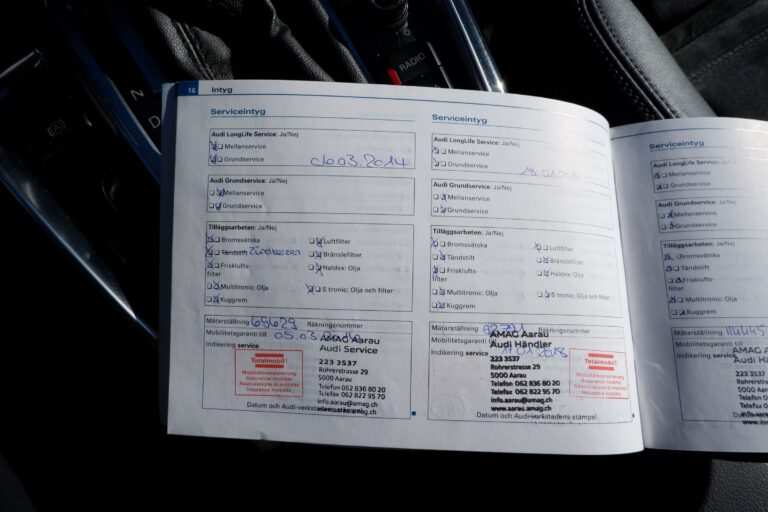 RADIO
N
D
16 Intyg
Serviceintyg
Audi LongLife Service: Ja/Nej
Mellanservice
Grundservice
06.03.2014
Audi Grundservice: Ja/Nej
Mellanservice
Grundservice
Tilläggsarbeten: Ja/Nej
Bromsvätska
Luftfilter
Tändstift
Bränslefilter
Friskluftsfilter
Haldex: Olja
Multitronic: Olja
S tronic: Olja och filter
Kuggrem
Mätarställning 68629 Räkningsnummer
Mobilitetsgaranti till 05.03.2016
Indikering service
AMAG Aarau
Audi Service
223 3537
Rohrerstrasse 29
5000 Aarau
Telefon 062 836 80 20
Telefax 062 822 95 70
info.aarau@amag.ch
www.aarau.amag.ch
Totalmobil!
Mobilitätsversicherung
Assurance mobilité
Assicurazione di mobilità
Insurance mobility
Datum och Audi-verkstadens stämpel
Serviceintyg
Audi LongLife Service: Ja/Nej
Mellanservice
Grundservice
Audi Grundservice: Ja/Nej
Mellanservice
Grundservice
Tilläggsarbeten: Ja/Nej
Bromsvätska
Luftfilter
Tändstift
Bränslefilter
Friskluftsfilter
Haldex: Olja
Multitronic: Olja
S tronic: Olja och filter
Kuggrem
Mätarställning Räkningsnummer
Mobilitetsgaranti till
Indikering service
AMAG Aarau
Audi Händler
223 3537
Rohrerstrasse 29
5000 Aarau
Telefon 062 836 80 20
Telefax 062 822 95 70
info.aarau@amag.ch
www.aarau.amag.ch
Totalmobil!
Mobilitätsversicherung
Assurance mobilité
Assicurazione di mobilità
Insurance mobility
Datum och Audi-verkstadens stämpel
Serviceintyg
Audi LongLife Service:
Mellanservice
Grundservice
Audi Grundservice:
Mellanservice
Grundservice
Tilläggsarbeten: Ja/Nej
Bromsvätska
Tändstift
Friskluftsfilter
Multitronic: Olja
Kuggrem
Mätarställning
Mobilitetsgaranti till
Indikering service
AMAG
Audi
223 3537
Rohrerstrasse
5000 Aarau
Telefon
Telefax 0
info.aarau
www.aarau
Datum